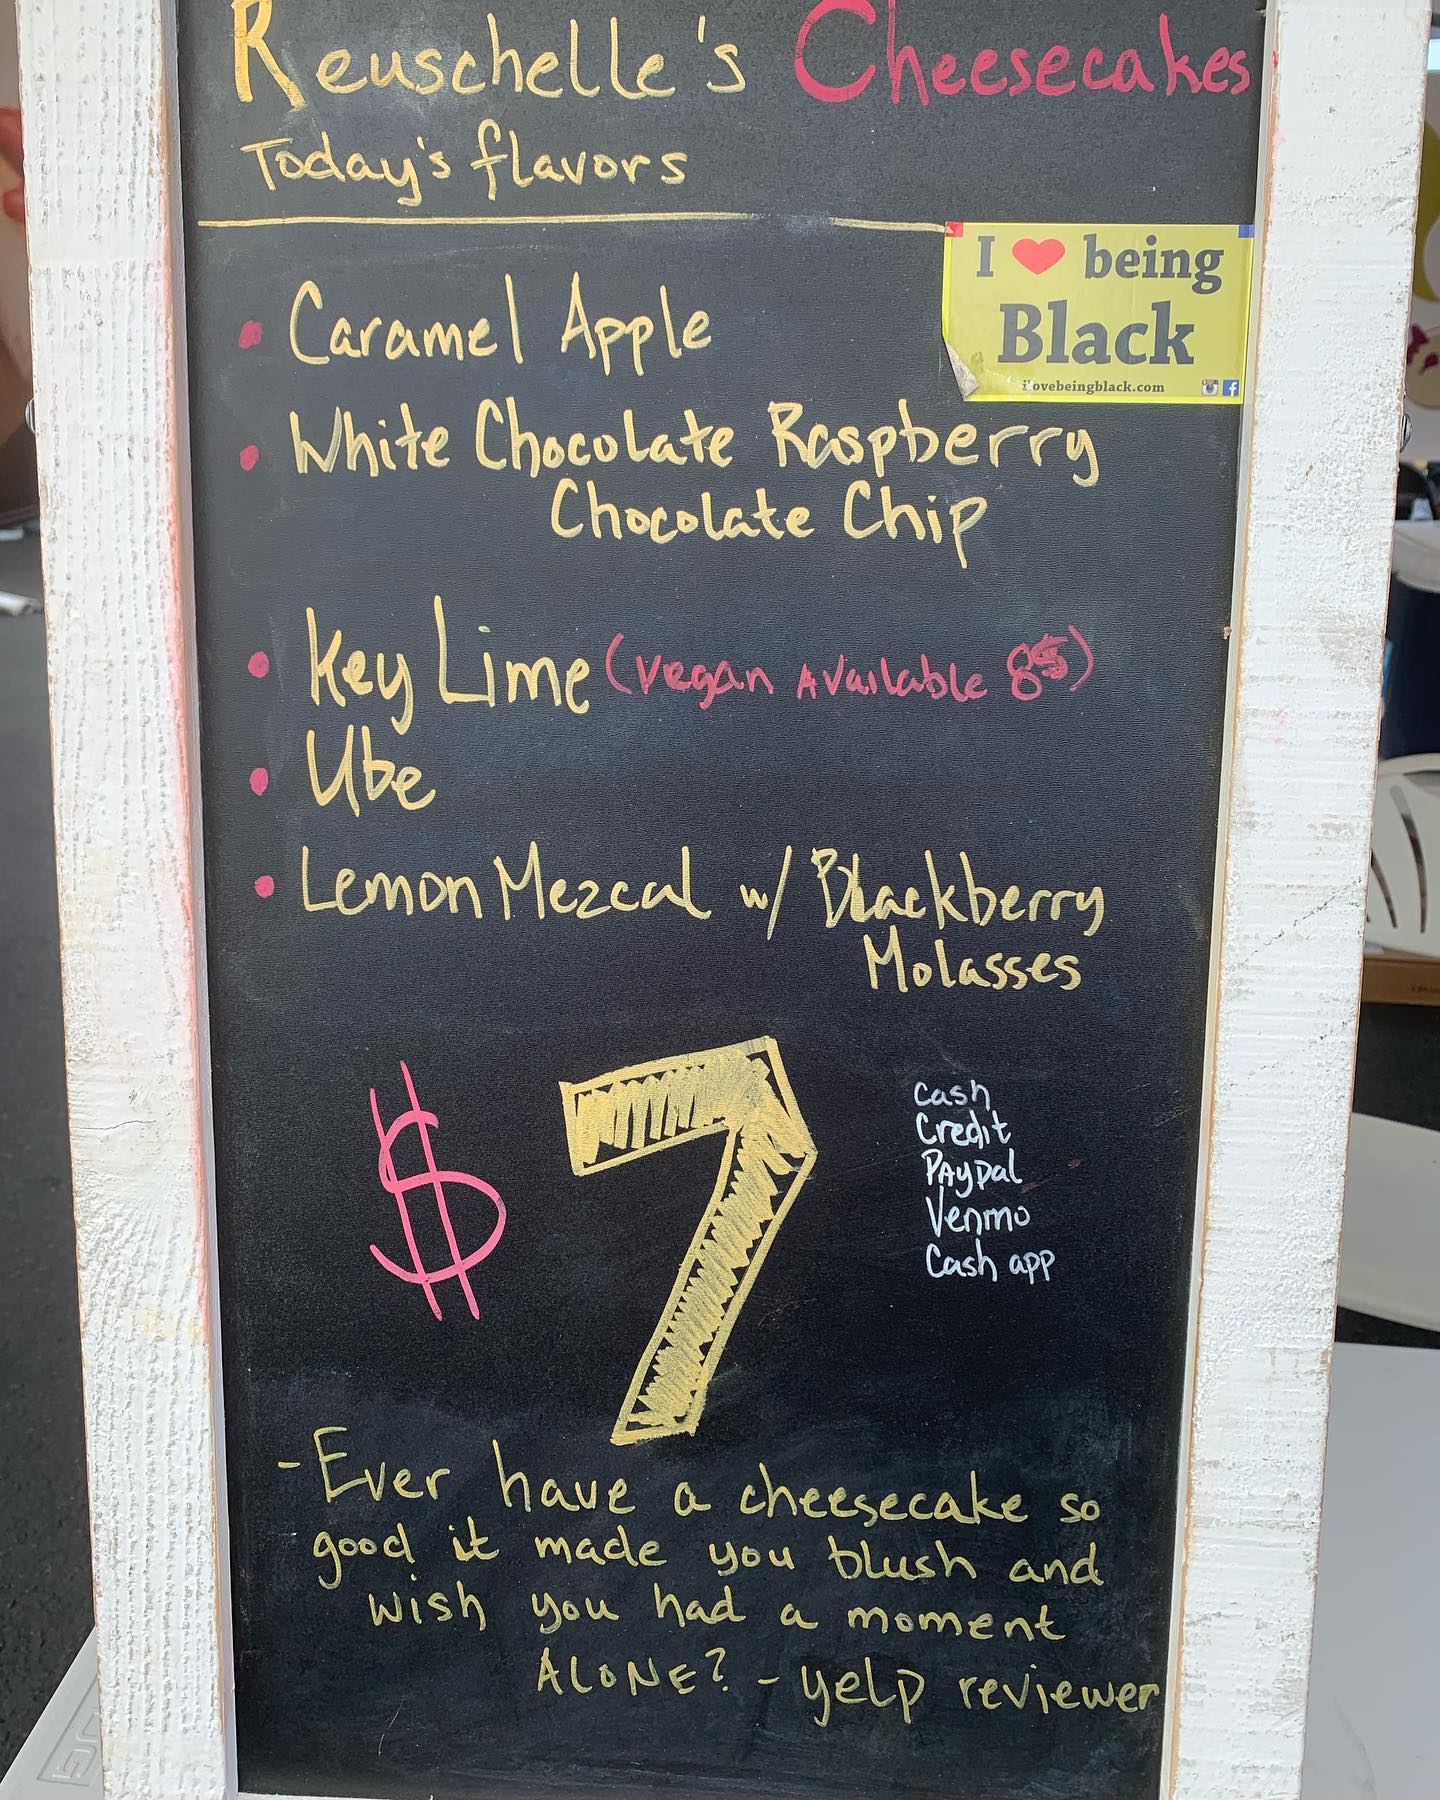 Reuschelle's Cheesecakes
Today's flavors
I ❤ being
Black
ilovebeingblack.com
• Caramel Apple
• White Chocolate Raspberry
Chocolate Chip
• Key Lime (Vegan Available 8$)
• Ube
• Lemon Mezcal w/ Blackberry
Molasses
$7
Cash
Credit
Paypal
Venmo
Cash app
- Ever have a cheesecake so
good it made you blush and
wish you had a moment
ALONE? - yelp reviewer